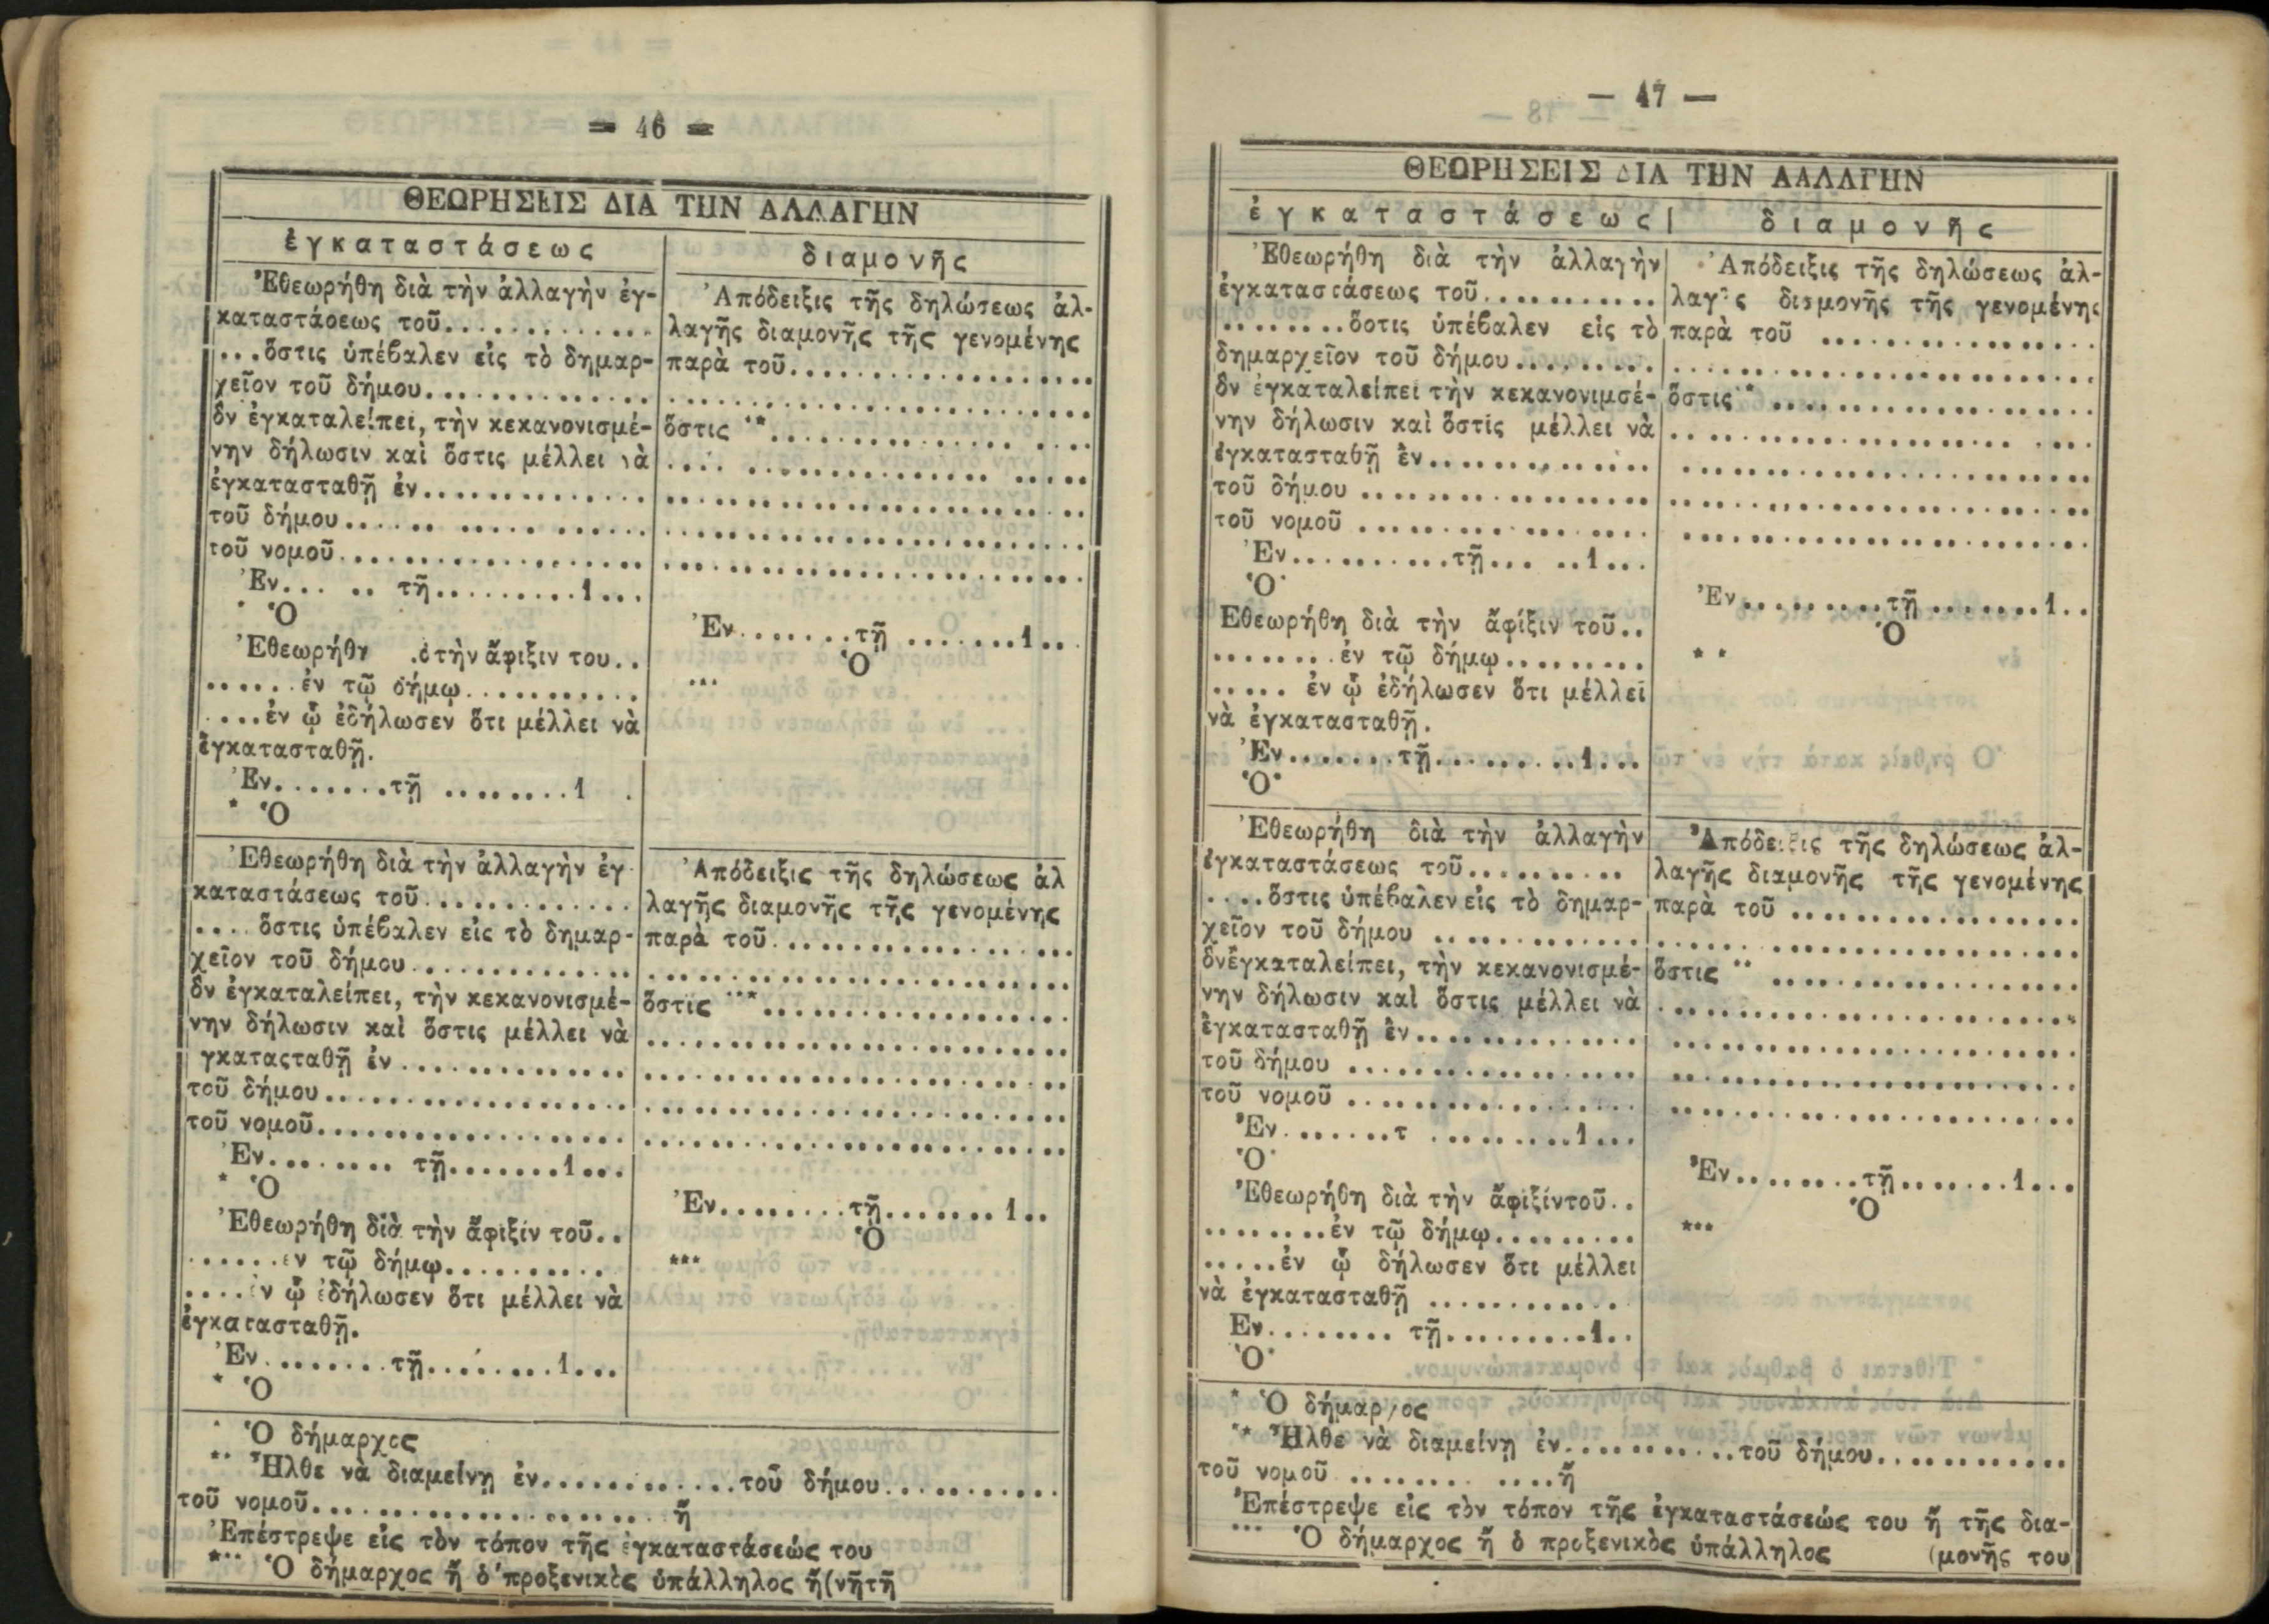 = 46 =
ΘΕΩΡΗΣΕΙΣ ΔΙΑ ΤΗΝ ΑΛΛΑΓΗΝ
ἐγκαταστάσεως
Ἐθεωρήθη διὰ τὴν ἀλλαγὴν ἐγ-
καταστάσεως τοῦ.............
...ὅστις ὑπέβαλεν εἰς τὸ δημαρ-
χεῖον τοῦ δήμου..............
ὃν ἐγκαταλείπει, τὴν κεκανονισμέ-
νην δήλωσιν καὶ ὅστις μέλλει νὰ
ἐγκατασταθῇ ἐν..............
τοῦ δήμου...... ..... ......
τοῦ νομοῦ...................
Ἐν... .. τῇ.........1...
* Ὁ
Ἐθεωρήθη τὴν ἄφιξιν του..
......ἐν τῷ δήμῳ...........
....ἐν ᾧ ἐδήλωσεν ὅτι μέλλει νὰ
ἐγκατασταθῇ.
Ἐν.......τῇ ........1 .
* Ὁ
διαμονῆς
Ἀπόδειξις τῆς δηλώσεως ἀλ-
λαγῆς διαμονῆς τῆς γενομένης
παρὰ τοῦ...................
..........................
ὅστις **............... ....
.... ............... .....
..........................
..........................
..........................
Ἐν.......τῇ .......1...
Ὁ
***
Ἐθεωρήθη διὰ τὴν ἀλλαγὴν ἐγ
καταστάσεως τοῦ.............
.... ὅστις ὑπέβαλεν εἰς τὸ δημαρ-
χεῖον τοῦ δήμου..............
ὃν ἐγκαταλείπει, τὴν κεκανονισμέ-
νην δήλωσιν καὶ ὅστις μέλλει νὰ
γκαταςταθῇ ἐν..............
τοῦ δήμου...................
τοῦ νομοῦ...................
Ἐν........ τῇ.......1...
* Ὁ
Ἐθεωρήθη διὰ τὴν ἄφιξιν τοῦ..
......εν τῷ δήμῳ..........
....ἐν ᾧ ἐδήλωσεν ὅτι μέλλει νὰ
ἐγκατασταθῇ.
Ἐν........τῇ........1...
* Ὁ
Ἀπόδειξις τῆς δηλώσεως ἀλ
λαγῆς διαμονῆς τῆς γενομένης
παρὰ τοῦ...................
..........................
ὅστις ***...................
..........................
..........................
..........................
..........................
Ἐν........τῇ.......1..
Ὁ
***
* Ὁ δήμαρχος
** Ἦλθε νὰ διαμείνῃ ἐν............τοῦ δήμου...........
τοῦ νομοῦ...................... ἢ
Ἐπέστρεψε εἰς τὸν τόπον τῆς ἐγκαταστάσεώς του
*** Ὁ δήμαρχος ἢ ὁ προξενικὸς ὑπάλληλος ἢ(νῆτῆ
— 47 —
ΘΕΩΡΗΣΕΙΣ ΔΙΑ ΤΗΝ ΑΛΛΑΓΗΝ
ἐγκαταστάσεως
Ἐθεωρήθη διὰ τὴν ἀλλαγὴν
ἐγκαταστάσεως τοῦ...........
........ὅστις ὑπέβαλεν εἰς τὸ
δημαρχεῖον τοῦ δήμου.........
ὃν ἐγκαταλείπει τὴν κεκανονιμσέ-
νην δήλωσιν καὶ ὅστις μέλλει νὰ
ἐγκατασταθῇ ἐν..............
τοῦ δήμου ..................
τοῦ νομοῦ ..................
Ἐν..........τῇ... ..1...
Ὁ*
Εθεωρήθη διὰ τὴν ἄφίξιν τοῦ..
........ἐν τῷ δήμῳ.........
..... ἐν ᾧ ἐδήλωσεν ὅτι μέλλει
νὰ ἐγκατασταθῇ.
Ἐν.......τῇ.........1...
Ὁ*
διαμονῆς
Ἀπόδειξις τῆς δηλώσεως ἀλ-
λαγῆς διαμονῆς τῆς γενομένης
παρὰ τοῦ .................
..........................
ὅστις * ....................
..................... ....
..........................
..........................
..........................
Ἐν.........τῇ.......1..
Ὁ
* *
Ἐθεωρήθη διὰ τὴν ἀλλαγὴν
ἐγκαταστάσεως τοῦ..........
....ὅστις ὑπέβαλεν εἰς τὸ δημαρ-
χεῖον τοῦ δήμου .............
ὃνἐγκαταλείπει, τὴν κεκανονισμέ-
νην δήλωσιν καὶ ὅστις μέλλει νὰ
ἐγκατασταθῇ ἐν..............
τοῦ δήμου ..................
τοῦ νομοῦ ..................
Ἐν.......τ .........1...
Ὁ*
Ἐθεωρήθη διὰ τὴν ἄφιξίντοῦ..
........ἐν τῷ δήμῳ.........
.....ἐν ᾧ δήλωσεν ὅτι μέλλει
νὰ ἐγκατασταθῇ ............
Εν........ τῇ.........1..
Ὁ*
Ἀπόδειξις τῆς δηλώσεως ἀλ-
λαγῆς διαμονῆς τῆς γενομένης
παρὰ τοῦ ..................
..........................
ὅστις ** ...................
..........................
..........................
..........................
..........................
Ἐν........τῇ.......1...
Ὁ
***
* Ὁ δήμαρχος
** Ἦλθε νὰ διαμείνῃ ἐν...........τοῦ δήμου............
τοῦ νομοῦ ........ ....ἢ
Ἐπέστρεψε εἰς τὸν τόπον τῆς ἐγκαταστάσεώς του ἢ τῆς δια-
*** Ὁ δήμαρχος ἢ ὁ προξενικὸς ὑπάλληλος (μονῆς του